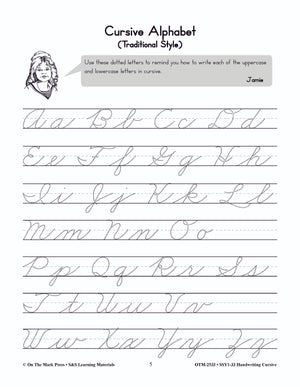 Cursive Alphabet
(Traditional Style)
Use these dotted letters to remind you how to write each of the uppercase
and lowercase letters in cursive.
Jamie
Aa Bb Cc Dd
Ee Ff Gg Hh
Ii Jj Kk Ll
Mm Nn Oo
Pp Qq Rr Ss
Tt Uu Vv
Ww Xx Yy Zz
© On The Mark Press • S&S Learning Materials 5 OTM-2533 • SSY1-33 Handwriting Cursive